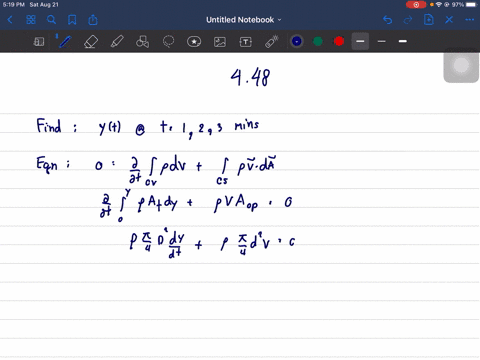 5:19 PM Sat Aug 21
97%
Untitled Notebook
4.48
Find : y(t) @ t = 1, 2, 3 mins
Eqn : 0 = ∂/∂t ∫_CV ρdv + ∫_CS ρv⃗·dA⃗
∂/∂t ∫_0^y ρA_t dy + ρVA_op = 0
ρ π/4 D² dy/dt + ρ π/4 d² v = 0